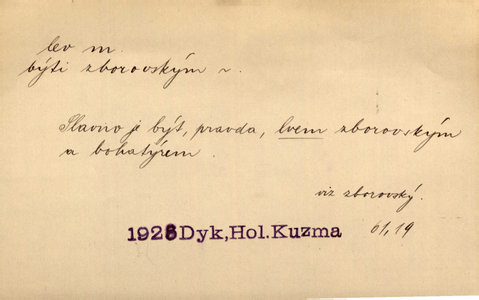 lev m.
býti zborovským ~.
Slavno je být, pravda, lvem zborovským
a bohatýrem.
viz zborovský.
1926 Dyk, Hol. Kuzma
61, 19